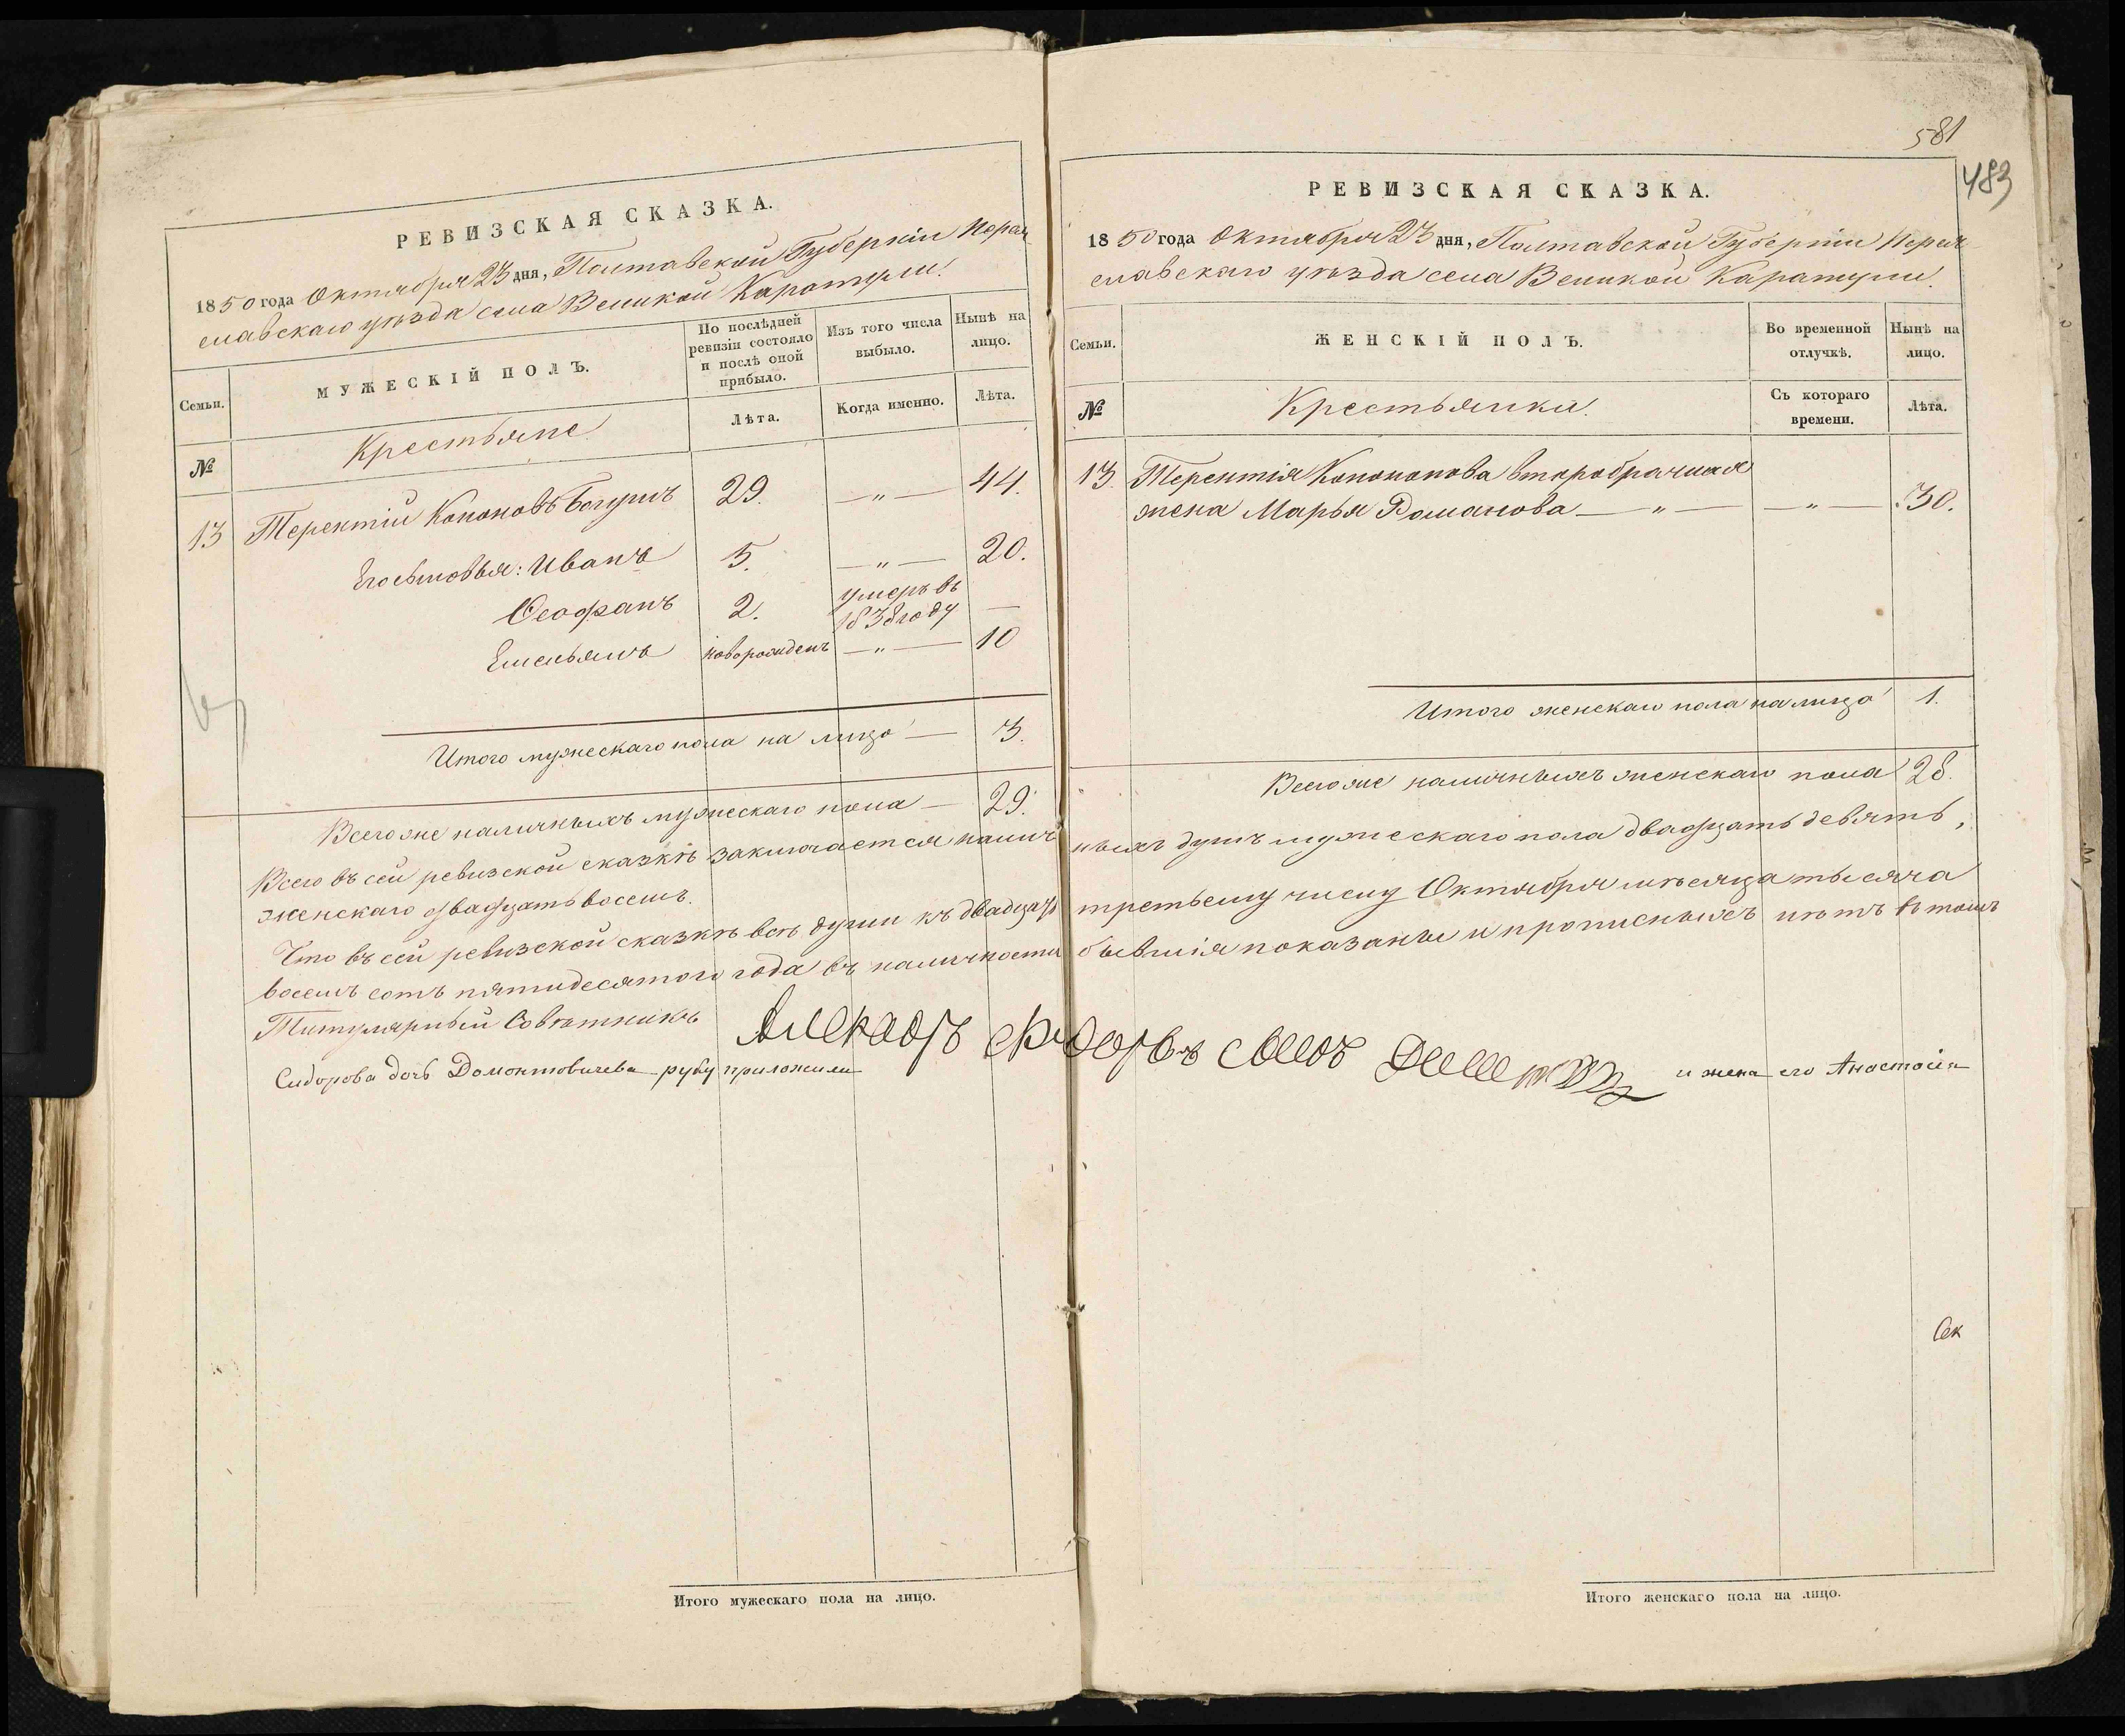 РЕВИЗСКАЯ СКАЗКА.
1850 года Октября 23 дня, Полтавской Губерніи Перея
славскаго уѣзда села Великой Каратули.
Семьи.
МУЖЕСКІЙ ПОЛЪ.
По послѣдней ревизіи состояло и послѣ оной прибыло.
Изъ того числа выбыло.
Нынѣ на лицо.
№
Крестьяне
Лѣта.
Когда именно.
Лѣта.
13 Терентій Кононовъ Богунъ 29. — „ — 44.
Его сыновья: Иванъ 5. — „ — 20.
Ѳеофанъ 2. умеръ въ 1838 году —
Емельянъ новорожденъ — „ — 10
Итого мужескаго пола на лицо — 3.
Всего же наличныхъ мужескаго пола — 29.
581
483
РЕВИЗСКАЯ СКАЗКА.
1850 года Октября 23 дня, Полтавской Губерніи Перея
славскаго уѣзда села Великой Каратули.
Семьи.
ЖЕНСКІЙ ПОЛЪ.
Во временной отлучкѣ.
Нынѣ на лицо.
№
Крестьянки.
Съ котораго времени.
Лѣта.
13 Терентія Кононова второбрачная
жена Марья Романова — „ — — „ — 30.
Итого женскаго пола на лицо 1.
Всего же наличныхъ женскаго пола 28.
Всего въ сей ревизской сказкѣ заключается наличныхъ душъ мужескаго пола двадцать девять,
женскаго двадцать восемь.
Что въ сей ревизской сказкѣ всѣ души къ двадцать третьему числу Октября мѣсяца тысяча
восемь сотъ пятидесятого года въ наличности бывшія показаны и прописныхъ нѣтъ въ томъ
Титулярный Совѣтникъ
и жена его Анастасія
Сидорова дочь Домонтовичева руку приложили
Сек
Итого мужескаго пола на лицо.
Итого женскаго пола на лицо.